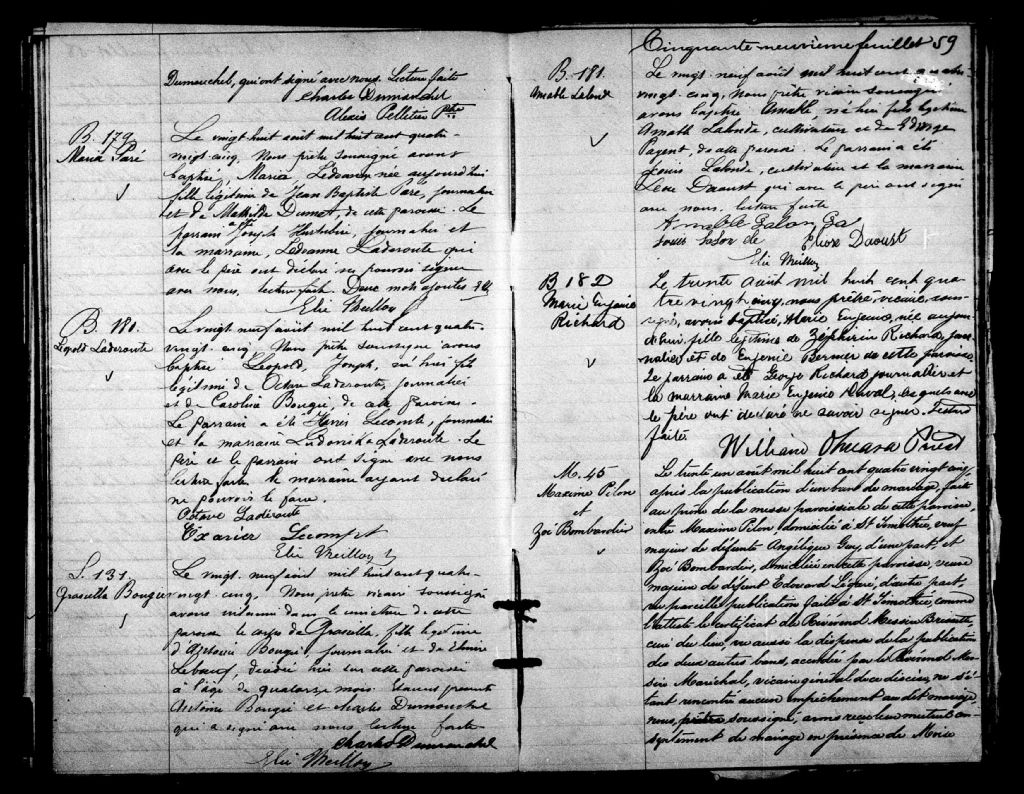 Dumouchel, qui ont signé avec nous. Lecture faite
Charles Dumouchel
Alexis Pelletier Ptre
B. 179
Maria Paré
Le vingt huit août mil huit cent quatre-
vingt cinq, Nous prêtre soussigné avons
baptisé, Maria, née aujourd'hui
fille légitime de Jean Baptiste Paré, journalier
et de Mathilde Dumet, de cette paroisse. Le
parrain a été Joseph journalier et
la marraine, Ledvanne Laderoute qui
avec le père ont déclaré ne pouvoir signer
avec nous, lecture faite. Deux mots ajoutés
Elie Meilloy
B. 180.
Léopold Laderoute
Le vingt neuf août mil huit cent quatre-
vingt cinq, Nous prêtre soussigné avons
baptisé Léopold, Joseph, né hier fils
légitime de Octave Laderoute, journalier
et de Caroline Bougie, de cette paroisse.
Le parrain a été Lecomte, journalier
et la marraine Ludoviska Laderoute. Le
père et le parrain ont signé avec nous
lecture faite, la marraine ayant déclaré
ne pouvoir le faire.
Octave Laderoute
Exavier Lecompt
Elie Meilloy
S. 131.
Graseilla Bougie
Le vingt neuf août mil huit cent quatre-
vingt cinq, Nous prêtre vicaire soussigné
avons inhumé dans le cimetière de cette
paroisse le corps de Graseilla, fille légitime
d'Antoine Bougie journalier et de Elmire
Leboeuf, décédée hier en cette paroisse
à l'âge de quatorze mois. Etaient présents
Antoine Bougie et Charles Dumouchel
qui a signé avec nous lecture faite
Charles Dumouchel
Elie Meilloy
Cinquante neuvième feuillet 59
B. 181.
Amable Lalonde
Le vingt neuf août mil huit cent quatre-
vingt-cinq, Nous prêtre vicaire soussigné
avons baptisé Amable né hier fils légitime
Amable Lalonde, cultivateur et de Edwige
Payent, de cette paroisse. Le parrain a été
Louis Lalonde, cultivateur et la marraine
Daoust qui avec le père ont signé
avec nous, lecture faite
Amable
Louis Lalonde Daoust
Elie Meilloy
B 182
Marie Eugénie
Richard
Le trente août mil huit cent qua-
tre vingt cinq, nous prêtre, vicaire, sous-
signé, avons baptisé, Marie Eugénie, née aujour-
d'hui, fille légitime de Zéphirin Richard, jour-
nalier et de Eugénie Bernier de cette paroisse.
Le parrain a été George Richard journalier et
la marraine Marie Eugénie Duval, lesquels avec
le père ont déclaré ne savoir signer. Lecture
faite
William Omeara Priest
M. 45
Maxime Pilon
et
Zoé Bombardier
Le trente un août mil huit cent quatre vingt cinq
après la publication d'un banc de mariage, faite
au prône de la messe paroissiale de cette paroisse,
entre Maxime Pilon domicilié à St Timothée, veuf
majeur de défunte Angélique Guy, d'une part, et
Zoé Bombardier, domiciliée en cette paroisse, veuve
majeure de défunt Edouard Légaré, d'autre part,
vu pareille publication faite à St Timothée, comme
l'atteste le certificat du Révérend Messire
curé du lieu, vu aussi la dispense de la publication
des deux autres bans, accordée par le Révérend Mes-
sire Maréchal, vicaire général du diocèse, ne s'é-
tant rencontré aucun empêchement au dit mariage,
nous, prêtre soussigné, avons reçu leur mutuel con-
sentement de mariage en présence de Moïse